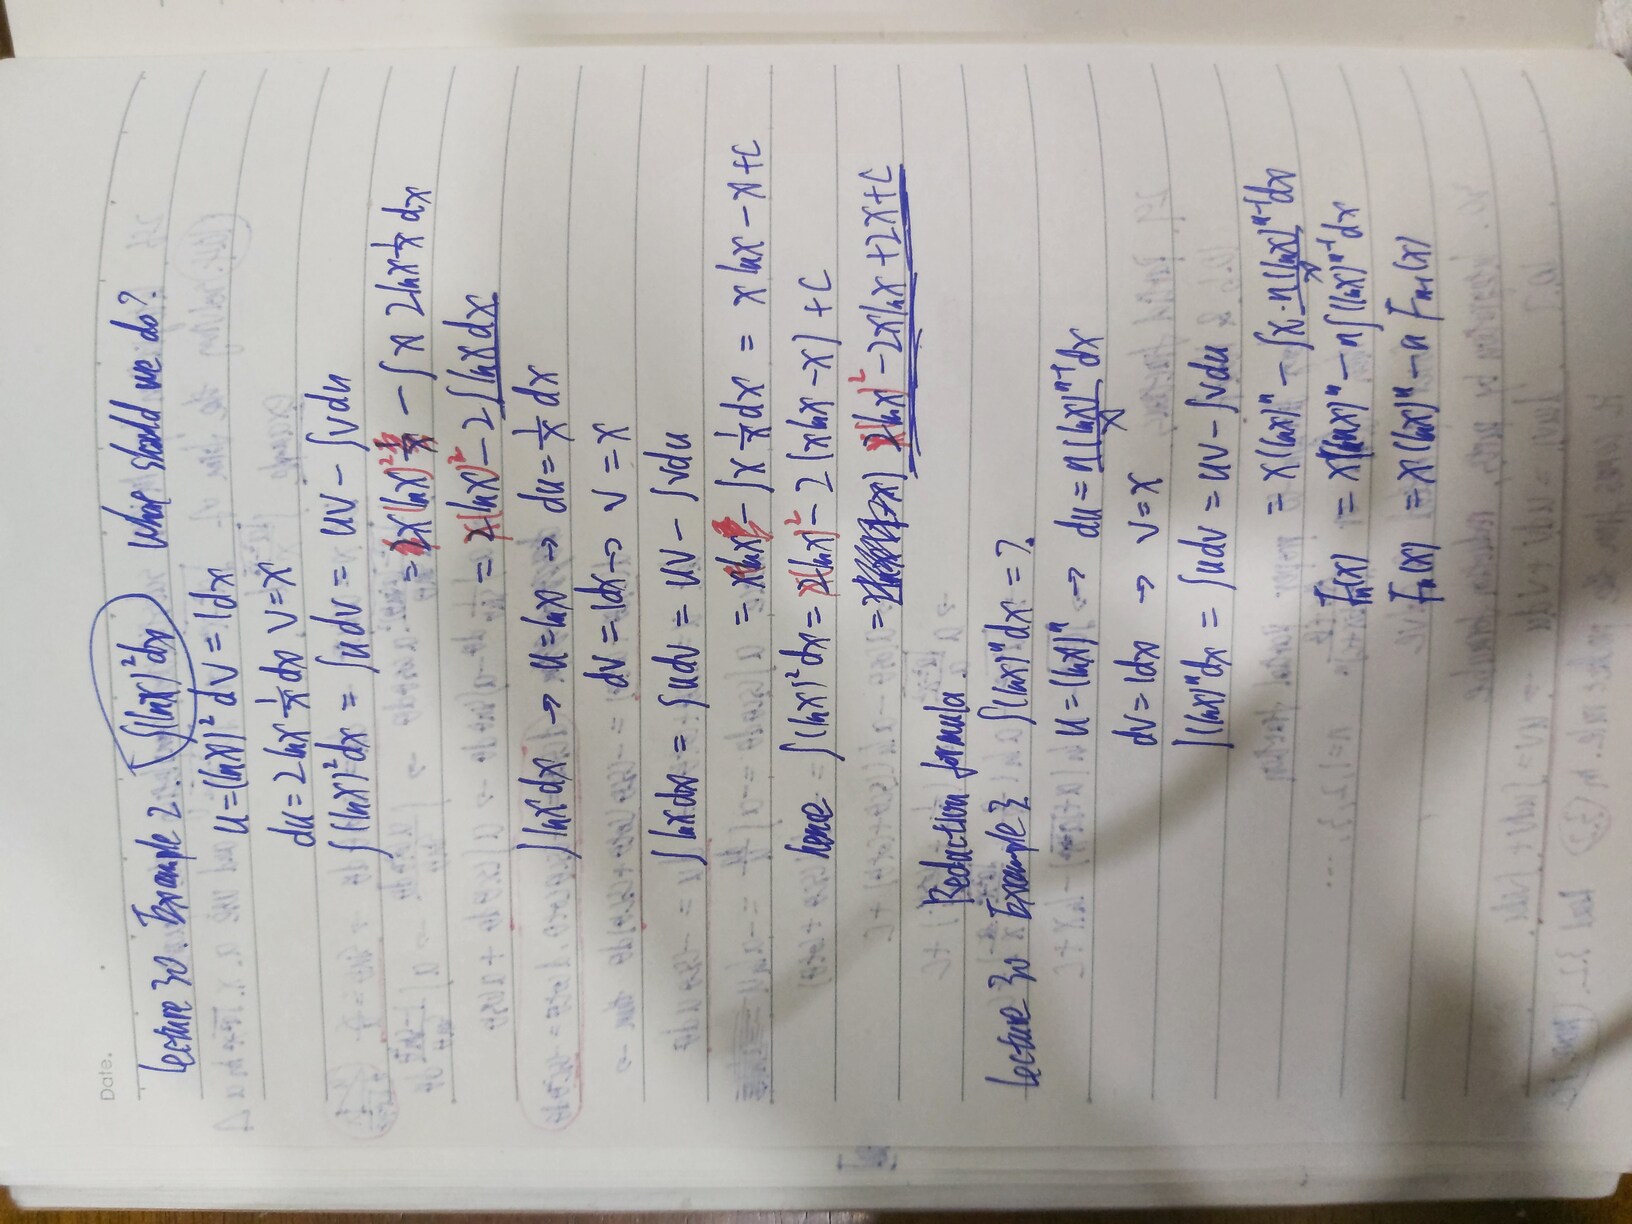 Date.
Lecture 30. Example 2. ∫(lnx)²dx What should we do?
u=(lnx)² dv=1dx
du=2lnx 1/x dx v=x
∫(lnx)²dx = ∫udv = uv-∫vdu
= x(lnx)² - ∫x 2lnx 1/x dx
= x(lnx)² - 2∫lnxdx
∫lnxdx → u=lnx → du=1/x dx
dv=1dx → v=x
∫lnxdx = ∫udv = uv-∫vdu
= xlnx - ∫x 1/x dx = xlnx-x+c
hence ∫(lnx)²dx= x(lnx)²-2(xlnx-x)+c
= x(lnx)²-2xlnx+2x+c
Reduction formula.
Lecture 30 Example 3 ∫(lnx)ⁿdx=?
u=(lnx)ⁿ → du= n(lnx)ⁿ⁻¹/x dx
dv=1dx → v=x
∫(lnx)ⁿdx = ∫udv = uv-∫vdu
= x(lnx)ⁿ - ∫x· n(lnx)ⁿ⁻¹/x dx
Fₙ(x) = x(lnx)ⁿ-n∫(lnx)ⁿ⁻¹dx
Fₙ(x) = x(lnx)ⁿ-n Fₙ₋₁(x)